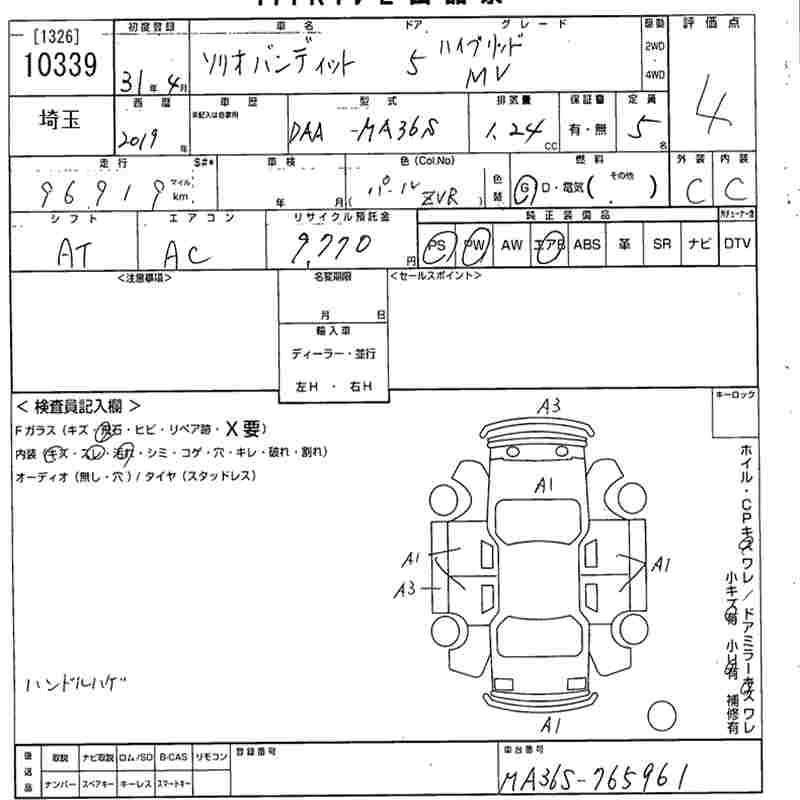 [1326]
10339
初度登録
31年 4月
車名
ソリオバンディット
ドア
5
グレード
ハイブリッド
MV
駆動
2WD
・
4WD
評価点
4
埼玉
西暦
2019年
車歴
※記入は自家用
型式
DAA -MA36S
排気量
1.24 CC
保証書
有・無
定員
5名
走行
S#*
96,919
マイル
km
車検
年 月
色(Col.No)
パール ZVR
色替
燃料
G D・電気( その他 )
外装
C
内装
C
シフト
AT
エアコン
AC
リサイクル預託金
9,770円
純正装備品
PS PW AW エアB ABS 革 SR ナビ DTV
<注意事項>
名変期限
月 日
輸入車
ディーラー・並行
左H ・ 右H
<セールスポイント>
キーロック
< 検査員記入欄 >
Fガラス (キズ・飛石・ヒビ・リペア跡・X要)
内装 (キズ・スレ・汚れ・シミ・コゲ・穴・キレ・破れ・割れ)
オーディオ (無し・穴) / タイヤ (スタッドレス)
A3
A1
A1
A3
A1
A1
ホイル・CPキズ ワレ / ドアミラーキズ ワレ
小キズ有 小U有 補修有
ハンドルハゲ
後送品
取説 ナビ取説 ロム/SD B-CAS リモコン
ナンバー スペアキー キーレス スマートキー
登録番号
車台番号
MA36S-765961